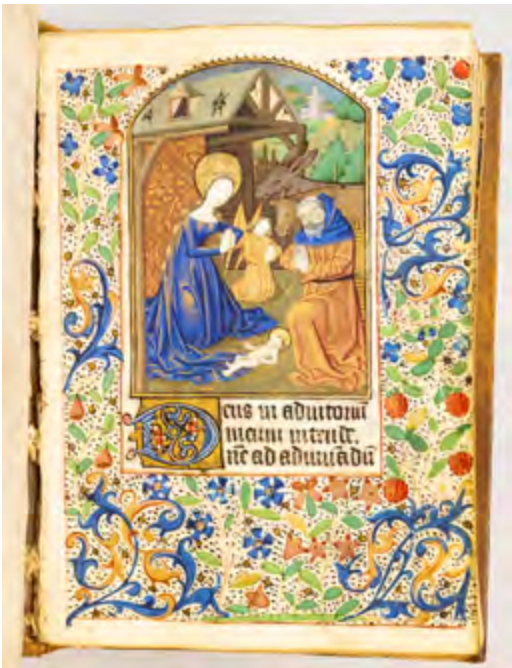 Deus in adiutoriu
meum intende.
Dne ad adiuuadu